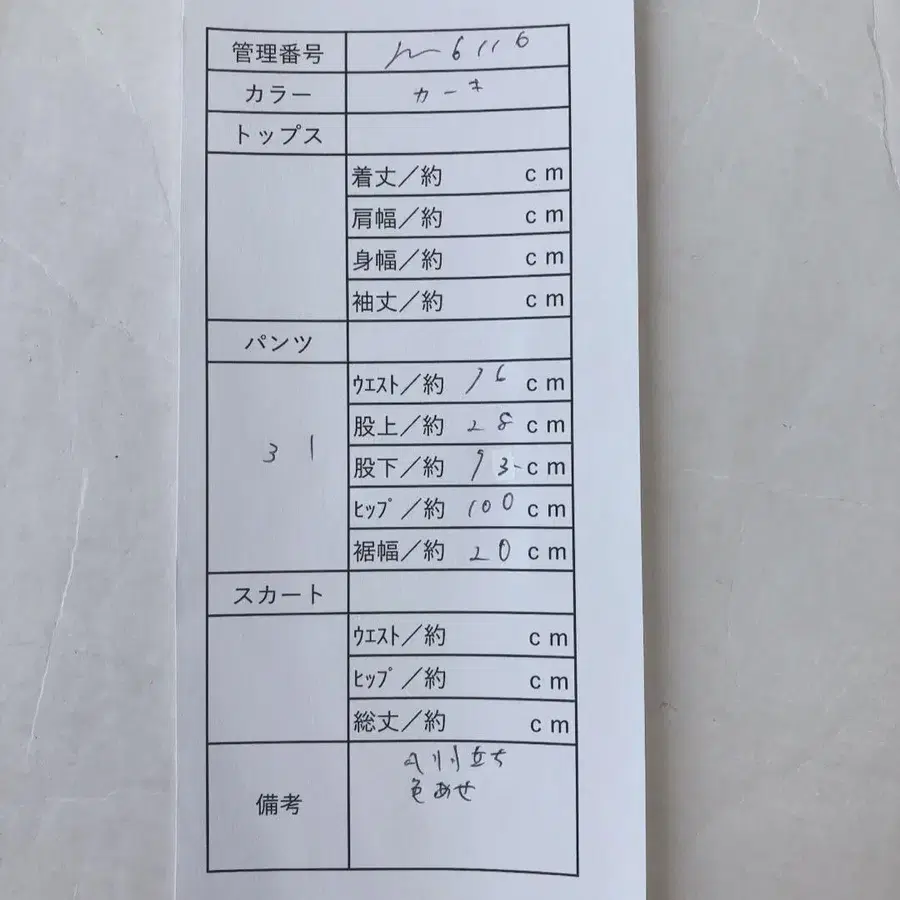 管理番号 m6116
カラー カーキ
トップス
着丈／約 cm
肩幅／約 cm
身幅／約 cm
袖丈／約 cm
パンツ
31
ウエスト／約 76 cm
股上／約 28 cm
股下／約 73 cm
ヒップ／約 100 cm
裾幅／約 20 cm
スカート
ウエスト／約 cm
ヒップ／約 cm
総丈／約 cm
備考
立ち
色あせ